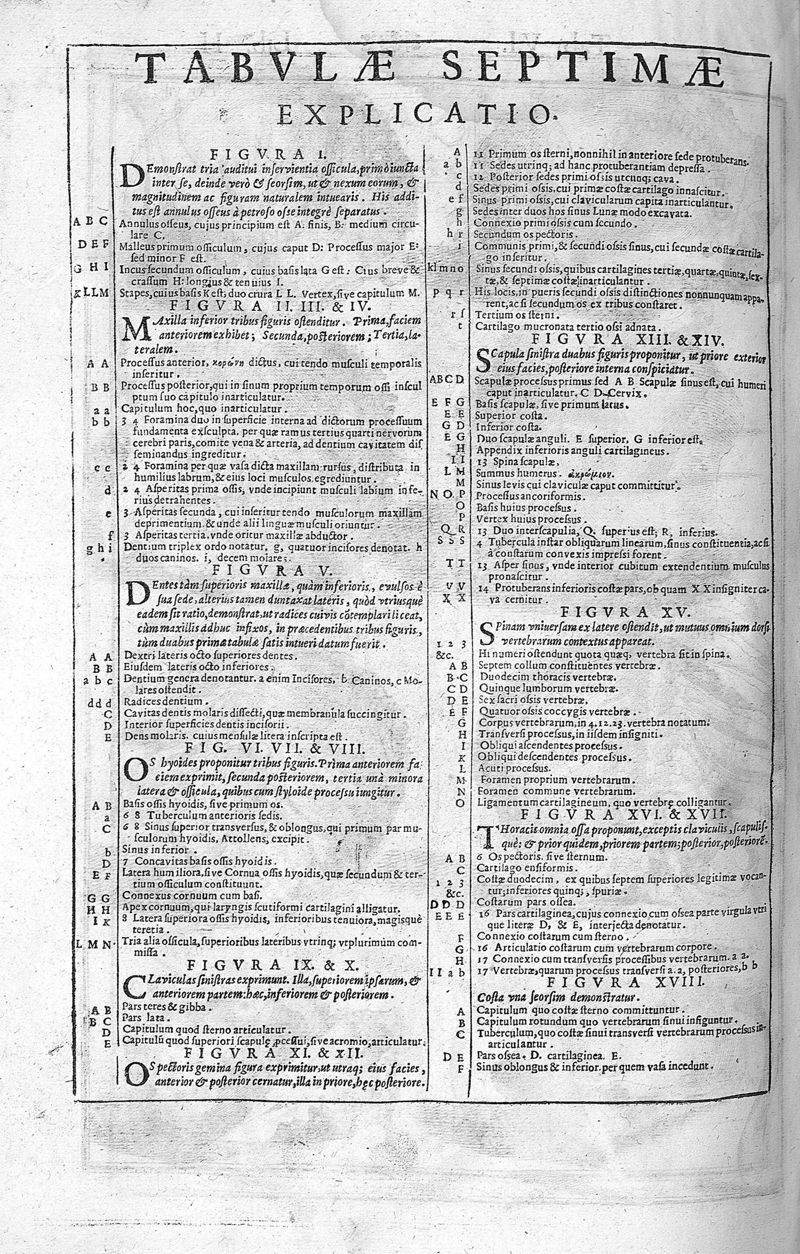 TABVLÆ SEPTIMÆ
EXPLICATIO.
FIGVRA I.
DEmonſtrat tria auditui inſervientia oſſicula, primò iuncta
inter ſe, deinde verò & ſeorſim, ut & nexum eorum, &
magnitudinem ac figuram naturalem intuearis. His addi-
tus eſt annulus oſſeus à petroſo oſse integrè ſeparatus.
A B C Annulus oſſeus, cujus principium eſt A. finis, B. medium circu-
lare C.
D E F Malleus primum oſſiculum, cujus caput D: Proceſſus major E:
ſed minor F eſt.
G H I Incus ſecundum oſſiculum, cuius baſis lata G eſt: Crus breve &
craſſum H: longius & tenuius I.
K L L M Stapes, cuius baſis K eſt; duo crura L L. Vertex, ſive capitulum M.
FIGVRA II. III. & IV.
MAxilla inferior tribus figuris oſtenditur. Prima, faciem
anteriorem exhibet; Secunda, poſteriorem; Tertia, la-
teralem.
A A Proceſſus anterior, κορώνη dictus, cui tendo muſculi temporalis
inſeritur.
B B Proceſſus poſterior, qui in ſinum proprium temporum oſſi inſcul
ptum ſuo capitulo inarticulatur.
a a Capitulum hoc, quo inarticulatur.
b b 3 4 Foramina duo in ſuperficie interna ad dictorum proceſſuum
fundamenta exſculpta. per quæ ramus tertius quarti nervorum
cerebri paris, comite vena & arteria, ad dentium cavitatem diſ
ſeminandus ingreditur.
c c 2 4 Foramina per quæ vaſa dicta maxillam rurſus, diſtributa in
humilius labrum, & eius loci muſculos egrediuntur.
d 2 4 Aſperitas prima oſſis, unde incipiunt muſculi labium infe-
rius detrahentes.
e 3 Aſperitas ſecunda, cui inſeritur tendo muſculorum maxillam
deprimentium. & unde alii linguæ muſculi oriuntur.
f 3 Aſperitas tertia, vnde oritur maxillæ abductor.
g h i Dentium triplex ordo notatur, g, quatuor inciſores denotat. h
duos caninos. i, decem molares.
FIGVRA V.
DEntes tàm ſuperioris maxillæ, quàm inferioris, evulſos è
ſua ſede, alterius tamen duntaxat lateris, quòd vtriusque
eadem ſit ratio, demonſtrat. ut radices cuivis cõtemplari liceat,
cùm maxillis adhuc infixos, in præcedentibus tribus figuris,
tùm duabus primæ tabulæ ſatis intueri datum fuerit.
A A Dextri lateris octo ſuperiores dentes.
B B Eiuſdem lateris octo inferiores.
a b c Dentium genera denotantur. a enim Inciſores, b Caninos, c Mo-
lares oſtendit.
d d d Radices dentium.
C Cavitas dentis molaris diſſecti, quæ membranula ſuccingitur.
D Interior ſuperficies dentis inciſorii.
E Dens molaris. cuius menſulæ litera inſcripta eſt.
FIG. VI. VII. & VIII.
OS hyoides proponitur tribus figuris. Prima anteriorem fa-
ciem exprimit, ſecunda poſteriorem, tertia unà minora
latera & oſſicula, quibus cum ſtyloide proceſſu iungitur.
A B Baſis oſſis hyoidis, ſive primum os.
a 6 8 Tuberculum anterioris ſedis.
C 6 8 Sinus ſuperior tranſverſus, & oblongus, qui primum par mu-
ſculorum hyoidis, Attollens, excipit.
b Sinus inferior.
D 7 Concavitas baſis oſſis hyoidis.
E F Latera humiliora, ſive Cornua oſſis hyoidis, quæ ſecundum & ter-
tium oſſiculum conſtituunt.
G G Connexus cornuum cum baſi.
H H Apex cornuum, qui laryngis ſcutiformi cartilagini alligatur.
I K 8 Latera ſuperiora oſſis hyoidis, inferioribus tenuiora, magiſquè
teretia.
L M N Tria alia oſſicula, ſuperioribus lateribus vtrinq; vtplurimùm com-
miſſa.
FIGVRA IX. & X.
CLaviculas ſiniſtras exprimunt. Illa, ſuperiorem ipſarum, &
anteriorem partem: hæc, inferiorem & poſteriorem.
A B Pars teres & gibba.
B C Pars lata.
D Capitulum quod ſterno articulatur.
E Capitulũ quod ſuperiori ſcapulę ꝓceſſui, ſive acromio, articulatur.
FIGVRA XI. & XII.
OS pectoris gemina figura exprimitur, ut utraq; eius facies,
anterior & poſterior cernatur, illa in priore, hęc poſteriore.
A 11 Primum os ſterni, nonnihil in anteriore ſede protuberans.
a b 11 Sedes utrinq; ad hanc protuberantiam depreſſa.
c 12 Poſterior ſedes primi oſſis utcunq; cava.
d Sedes primi oſſis, cui primæ coſtæ cartilago innaſcitur.
e f Sinus primi oſſis, cui clavicularum capita inarticulantur.
g Sedes inter duos hos ſinus Lunæ modo excavata.
h Connexio primi oſſis cum ſecundo.
h r Secundum os pectoris.
i Communis primi, & ſecundi oſſis ſinus, cui ſecundæ coſtæ cartila-
go inſeritur.
k l m n o Sinus ſecundi oſſis, quibus cartilagines tertiæ, quartæ, quintæ, ſex-
tæ, & ſeptimæ coſtæ inarticulantur.
p q r His locis, in pueris ſecundi oſſis diſtinctiones nonnunquam appa-
rent, ac ſi ſecundum os ex tribus conſtaret.
r ſ Tertium os ſterni.
t Cartilago mucronata tertio oſſi adnata.
FIGVRA XIII. & XIV.
SCapula ſiniſtra duabus figuris proponitur, ut priore exterior
eius facies, poſteriore interna conſpiciatur.
A B C D Scapulæ proceſſus primus ſed A B Scapulæ ſinus eſt, cui humeri
caput inarticulatur, C D Cervix.
E F G Baſis ſcapulæ, ſive primum latus.
E E Superior coſta.
G D Inferior coſta.
E G Duo ſcapulæ anguli. E ſuperior, G inferior eſt.
H Appendix inferioris anguli cartilagineus.
I I 13 Spina ſcapulæ.
L M Summus humerus. ἀκρώμιον.
M Sinus levis cui claviculæ caput committitur.
N O P Proceſſus ancoriformis.
O Baſis huius proceſſus.
P Vertex huius proceſſus.
Q R 13 Duo interſcapulia, Q. ſuperius eſt; R, inferius.
S S S 4 Tubercula inſtar obliquarum linearum, ſinus conſtituentia, ac ſi
à coſtarum convexis impreſſi forent.
T T 13 Aſper ſinus, vnde interior cubitum extendentium muſculus
pronaſcitur.
V V 14 Protuberans inferioris coſtæ pars, ob quam X X inſigniter ca-
X X va cernitur.
FIGVRA XV.
SPinam vniverſam ex latere oſtendit, ut mutuus omnium dorſi
vertebrarum contextus appareat.
1 2 3 Hi numeri oſtendunt quota quæq; vertebra ſit in ſpina.
&c.
A B Septem collum conſtituentes vertebræ.
B C Duodecim thoracis vertebræ.
C D Quinque lumborum vertebræ.
D E Sex ſacri oſſis vertebræ.
E F Quatuor oſſis coccygis vertebræ.
G Corpus vertebrarum, in 4. 12. 23. vertebra notatum.
H Tranſverſi proceſſus, in iiſdem inſigniti.
I Obliqui aſcendentes proceſſus.
K Obliqui deſcendentes proceſſus.
L Acuti proceſſus.
M Foramen proprium vertebrarum.
N Foramen commune vertebrarum.
O Ligamentum cartilagineum, quo vertebrę colligantur.
FIGVRA XVI. & XVII.
THoracis omnia oſſa proponunt, exceptis claviculis, ſcapuliſ-
què: & prior quidem, priorem partem; poſterior, poſteriorē.
A B 6 Os pectoris. ſive ſternum.
C Cartilago enſiformis.
1 2 3 Coſtæ duodecim, ex quibus ſeptem ſuperiores legitimæ vocan-
&c. tur; inferiores quinq;, ſpuriæ.
D D D Coſtarum pars oſſea.
E E E 16 Pars cartilaginea, cujus connexio cum oſſea parte virgula vtri
que literæ D, & E, interjecta denotatur.
F Connexio coſtarum cum ſterno.
G 16 Articulatio coſtarum cum vertebrarum corpore.
H 17 Connexio cum tranſverſis proceſſibus vertebrarum. a a.
I I a b 17 Vertebræ, quarum proceſſus tranſverſi a. a, poſteriores, b b
FIGVRA XVIII.
Coſta vna ſeorſim demonſtratur.
A Capitulum quo coſtæ ſterno committuntur.
B Capitulum rotundum quo vertebrarum ſinui inſiguntur.
C Tuberculum, quo coſtæ ſinui tranſverſi vertebrarum proceſſus in-
articulantur.
D E Pars oſſea. D. cartilaginea. E.
F Sinus oblongus & inferior. per quem vaſa incedunt.